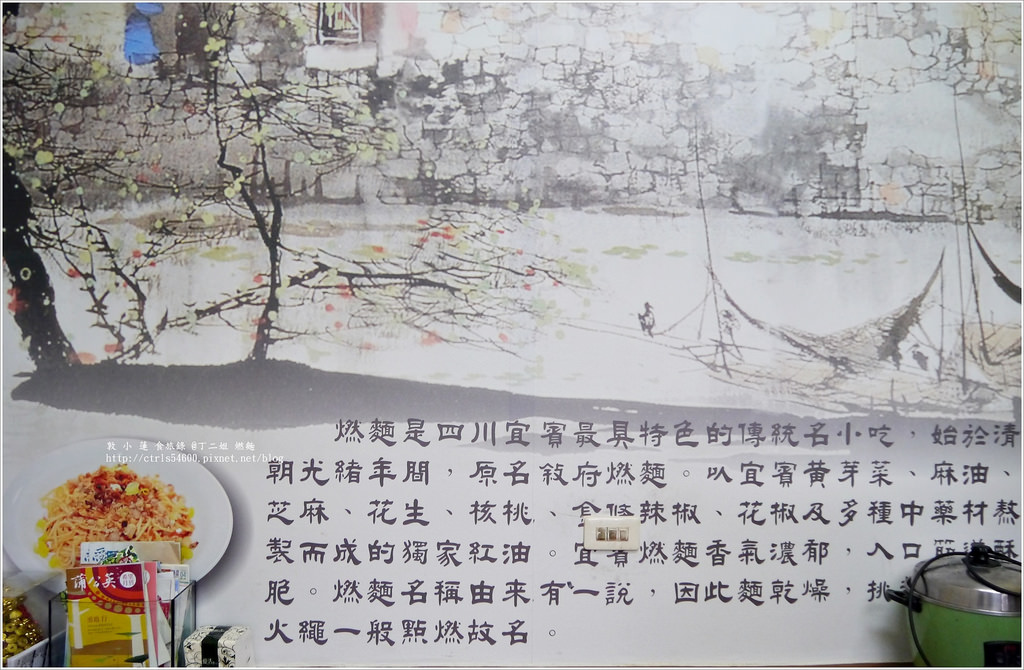 燃麵是四川宜賓最具特色的傳統名小吃，始於清
朝光緒年間，原名敘府燃麵。以宜賓黃芽菜、麻油、
芝麻、花生、核桃、金條辣椒、花椒及多種中藥材熬
製而成的獨家紅油。宜賓燃麵香氣濃郁，入口 酥
脆。燃麵名稱由來有一說，因此麵乾燥，挑
火繩一般點燃故名。
敦 小 蓮 食旅錄 @丁二姐 燃麵
http://ctrls54600.pixnet.net/blog
蒲公英